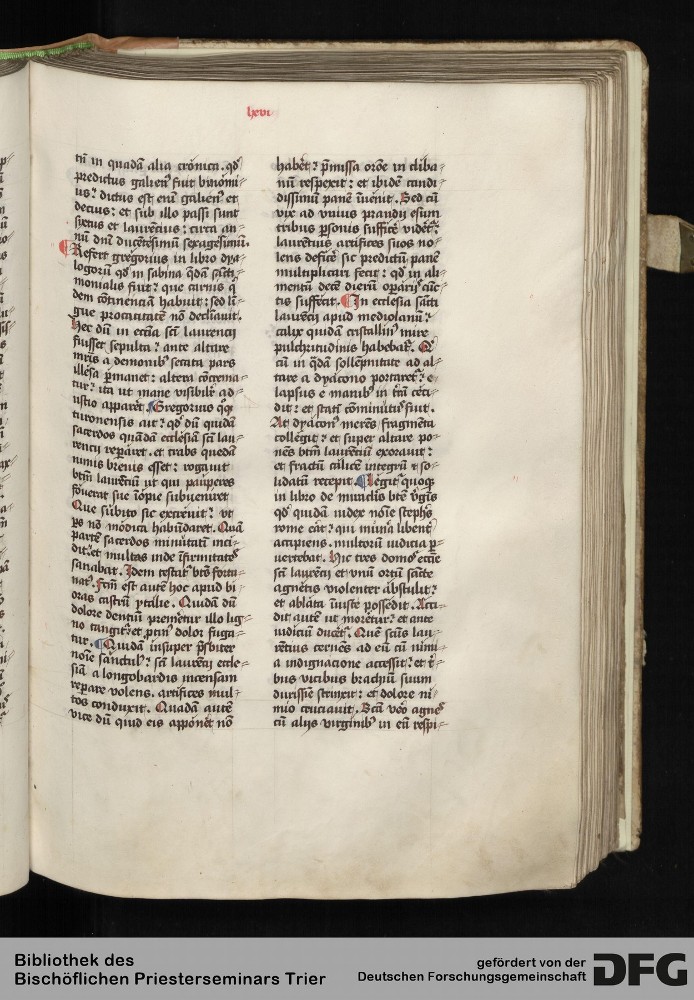 lxvi
tñ in quadā alia crōnica. qđ
predictus galien9 fuit binōmi=
us? dictus est eni galien9 et
decius: et sub illo passi sunt
sixtus et laurēcius: circa an=
nū dni ducētesimū sexagesimū.
Refert gregorius in libro dya=
logorū qđ in sabina qdā scti=
monialis fuit? que carnis q̄
dem cōtinenciā habuit: sed lī=
gue procacitatē nō declinauit.
Hec dū in ecclia scti laurencij
fuisset sepulta? ante altare
mrīs a demonib9 secata pars
illesa pmanet: altera cōcrema=
tur? ita ut mane visibilit ad=
ustio apparet. Gregorius qq
turonensis ait? qđ dū quidā
sacerdos quādā ecclesiā scti lau=
rencij repararet. et trabs quedā
nimis breuis esset: rogauit
btm laurētiū ut qui paupes
fouerat sue iopie subueniret
Que subito sic excreuit? ut
ps nō modica habūdaret. Quā
partē sacerdos minutatī inci=
dit. et multas inde ifirmitates
sanabat. Idem testat bts fortu=
nat9. Fctm est autē hoc apud bi=
oras castrū ytalie. Quidā dū
dolore dentiū premeretur illo lig=
no tangit? et ptin9 dolor fuga=
tur. Quidā insuper psbiter
noie sanctul9? scti laurētij eccle=
siā a longobardis incensam
repare volens. artifices mul=
tos conduxit. Quadā autē
vice dū quid eis apponet nō
habet? pmissa oroe in cliba=
nū respexit: et ibidē candi=
dissimū panē iuenit. Sed cū
vix ad vnius prandij esum
tribus psonis suffice videt?
laurētius artifices suos no=
lens defice sic predictū panē
multiplicari fecit: qđ in ali=
mentū decē dierū oparijs cūc=
tis suffecit. In ecclesia scti
laurēcij apud mediolanū?
calix quidā cristallin9 mire
pulchritudinis habebat.
cū in qdā sollēpnitate ad al=
tare a dyacono portaret? e
lapsus e manib9 in trā ceci=
dit: et stati cōminut9 fuit.
At dyacon9 merēs fragmēta
collegit? et super altare po=
nēs btm laurētiū exorauit:
et fractū calicē integrū & so=
lidatū recepit. Legit quoqz
in libro de miraclis bte vgīs
qđ quidā iudex noīe stephs
rome erat? qui mūa libent
accipiens. multorū iudicia p=
uertebat. Hic tres domos eccie
scti laurēcij et vnū ortū scte
agnetis violenter abstulit?
et ablata iuiste possedit. Acci=
dit autē ut moretur? et ante
iudiciū ducet. Quē sctus lau=
rētius cernēs ad eū cū nimi=
a indignacione accessit? et t=
bus vicibus brachiū suum
durissie strinxit: et dolore ni=
mio cruciauit. Scta vo agnes
cū alijs virginib9 in eū respi=
Bibliothek des
Bischöflichen Priesterseminars Trier
gefördert von der
Deutschen Forschungsgemeinschaft
DFG